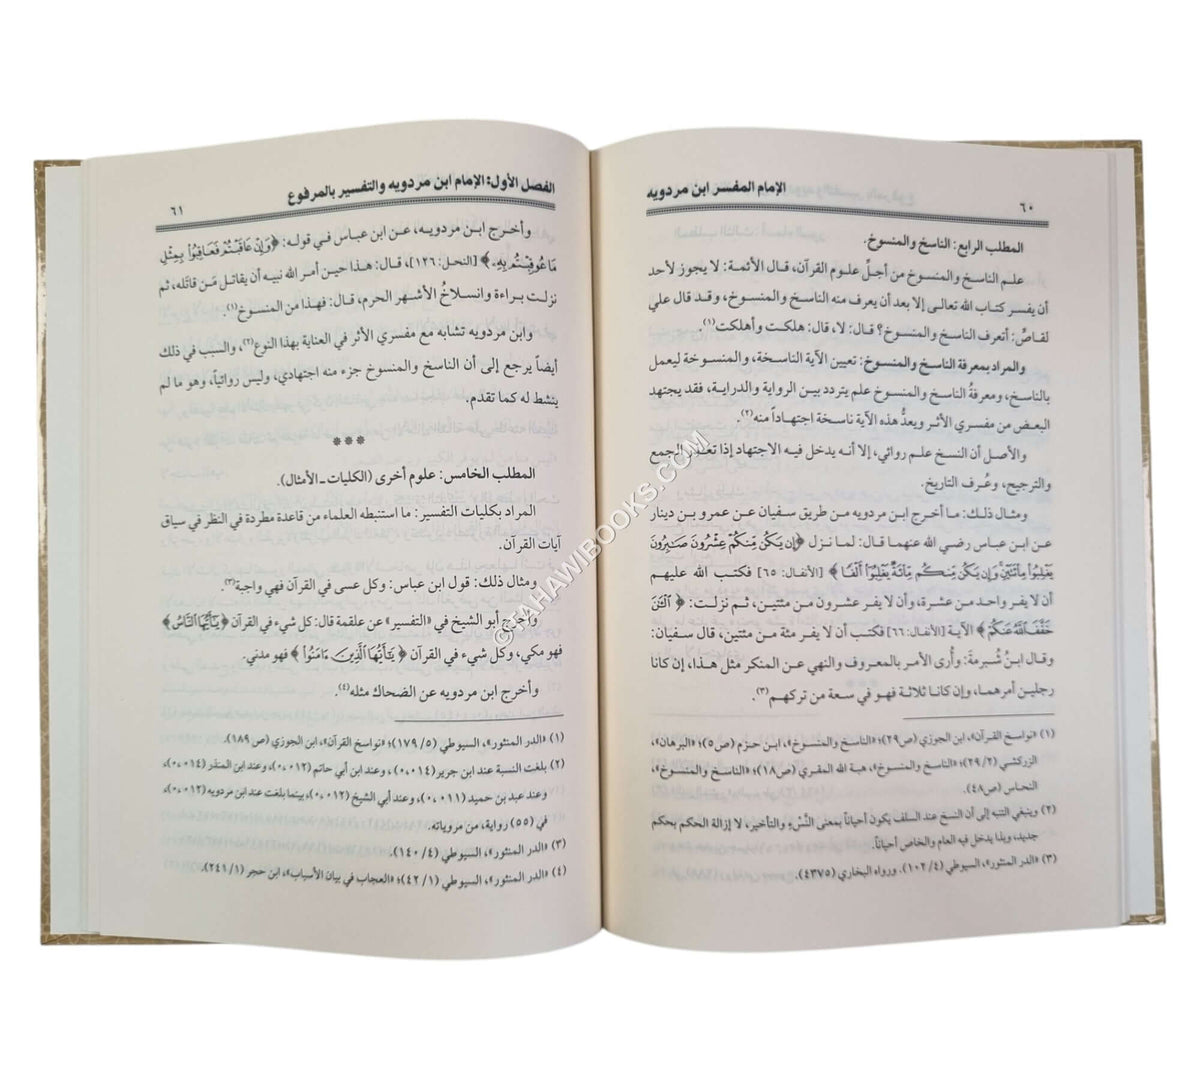 الإمام المفسر ابن مردويه
٦٠
المطلب الرابع: الناسخ والمنسوخ.
علم الناسخ والمنسوخ من أجلِّ علوم القرآن، قال الأئمة: لا يجوز لأحد
أن يفسر كتاب الله تعالى إلا بعد أن يعرف منه الناسخ والمنسوخ، وقد قال علي
لقاصٍّ: أتعرف الناسخ والمنسوخ؟ قال: لا، قال: هلكت وأهلكت(١).
والمراد بمعرفة الناسخ والمنسوخ: تعيين الآية الناسخة، والمنسوخة ليعمل
بالناسخ، ومعرفةُ الناسخ والمنسوخ علم يتردد بين الرواية والدراية، فقد يجتهد
البعض من مفسري الأثر ويعدُّ هذه الآية ناسخة اجتهاداً منه(٢).
والأصل أن النسخ علم روائي، إلا أنه يدخل فيه الاجتهاد إذا تعذر الجمع
والترجيح، وعُرف التاريخ.
ومثال ذلك: ما أخرج ابن مردويه من طريق سفيان عن عمرو بن دينار
عن ابن عباس رضي الله عنهما قال: لما نزل ﴿إِن يَكُن مِّنكُمْ عِشْرُونَ صَٰبِرُونَ
يَغْلِبُوا۟ مِا۟ئَتَيْنِ وَإِن يَكُن مِّنكُم مِّا۟ئَةٌ يَغْلِبُوٓا۟ أَلْفًا﴾ [الأنفال: ٦٥] فكتب الله عليهم
أن لا يفر واحد من عشرة، وأن لا يفر عشرون من مئتين، ثم نزلت: ﴿ٱلْـَٰٔنَ
خَفَّفَ ٱللَّهُ عَنكُمْ﴾ الآية [الأنفال: ٦٦] فكتب أن لا يفر مئة من مئتين، قال سفيان:
وقال ابنُ شُبرمة: وأُرى الأمر بالمعروف والنهي عن المنكر مثل هذا، إن كانا
رجلين أمرهما، وإن كانا ثلاثة فهو في سعة من تركهم(٣).
(١) «نواسخ القرآن»، ابن الجوزي (ص٢٩)؛ «الناسخ والمنسوخ»، ابن حزم (ص٥)؛ «البرهان»،
الزركشي (٢/ ٢٩)؛ «الناسخ والمنسوخ»، هبة الله المقري (ص١٨)؛ «الناسخ والمنسوخ»،
النحاس (ص٤٨).
(٢) وينبغي التنبه إلى أن النسخ عند السلف يكون أحياناً بمعنى النَّسْءِ والتأخير، لا إزالة الحكم بحكم
جديد، وبذا يدخل فيه العام والخاص أحياناً.
(٣) «الدر المنثور»، السيوطي (٤/ ١٠٢). ورواه البخاري (٤٣٧٥).
الفصل الأول: الإمام ابن مردويه والتفسير بالمرفوع
٦١
وأخرج ابن مردويه، عن ابن عباس في قوله: ﴿وَإِنْ عَاقَبْتُمْ فَعَاقِبُوا۟ بِمِثْلِ
مَا عُوقِبْتُم بِهِۦ﴾ [النحل: ١٢٦]، قال: هذا حين أمر الله نبيه أن يقاتل مَن قاتله، ثم
نزلت براءة وانسلاخُ الأشهر الحرم، قال: فهذا من المنسوخ(١).
وابن مردويه تشابه مع مفسري الأثر في العناية بهذا النوع(٢)، والسبب في ذلك
أيضاً يرجع إلى أن الناسخ والمنسوخ جزء منه اجتهادي، وليس روائياً، وهو ما لم
ينشط له كما تقدم.
***
المطلب الخامس: علوم أخرى (الكليات ـ الأمثال).
المراد بكليات التفسير: ما استنبطه العلماء من قاعدة مطردة في النظر في سياق
آيات القرآن.
ومثال ذلك: قول ابن عباس: وكل عسى في القرآن فهي واجبة(٣).
وأخرج أبو الشيخ في «التفسير» عن علقمة قال: كل شيء في القرآن ﴿يَٰٓأَيُّهَا ٱلنَّاسُ﴾
فهو مكي، وكل شيء في القرآن ﴿يَٰٓأَيُّهَا ٱلَّذِينَ ءَامَنُوا۟﴾ فهو مدني.
وأخرج ابن مردويه عن الضحاك مثله(٤).
(١) «الدر المنثور»، السيوطي (٥/ ١٧٩)؛ «نواسخ القرآن»، ابن الجوزي (ص ١٨٩).
(٢) بلغت النسبة عند ابن جرير (٠،٠١٤)، وعند ابن أبي حاتم (٠،٠١٢)، وعند ابن المنذر (٠،٠١٤)،
وعند عبد بن حميد (٠،٠١١)، وعند أبي الشيخ (٠،٠١٢)، بينما بلغت عند ابن مردويه (٠،٠١٢)،
في (٥٥) رواية، من مروياته.
(٣) «الدر المنثور»، السيوطي (٤/ ١٤٠).
(٤) «الدر المنثور»، السيوطي (١/ ٤٢)؛ «العجاب في بيان الأسباب»، ابن حجر (١/ ٢٤١).
©TAHAWIBOOKS.COM